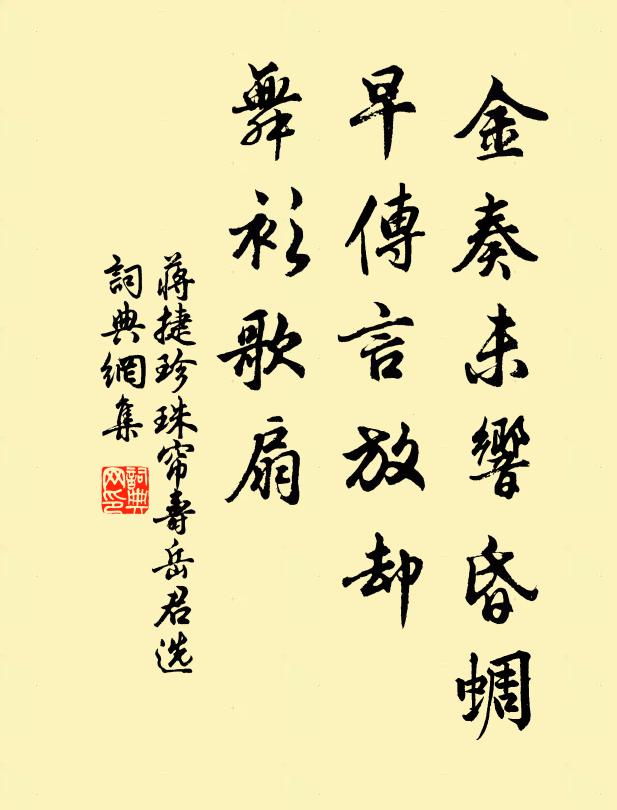 金奏未響昏蜩
早傳言放却
舞衫歌扇
蔣捷珍珠帘壽岳君选
詞典網集
詞典网印